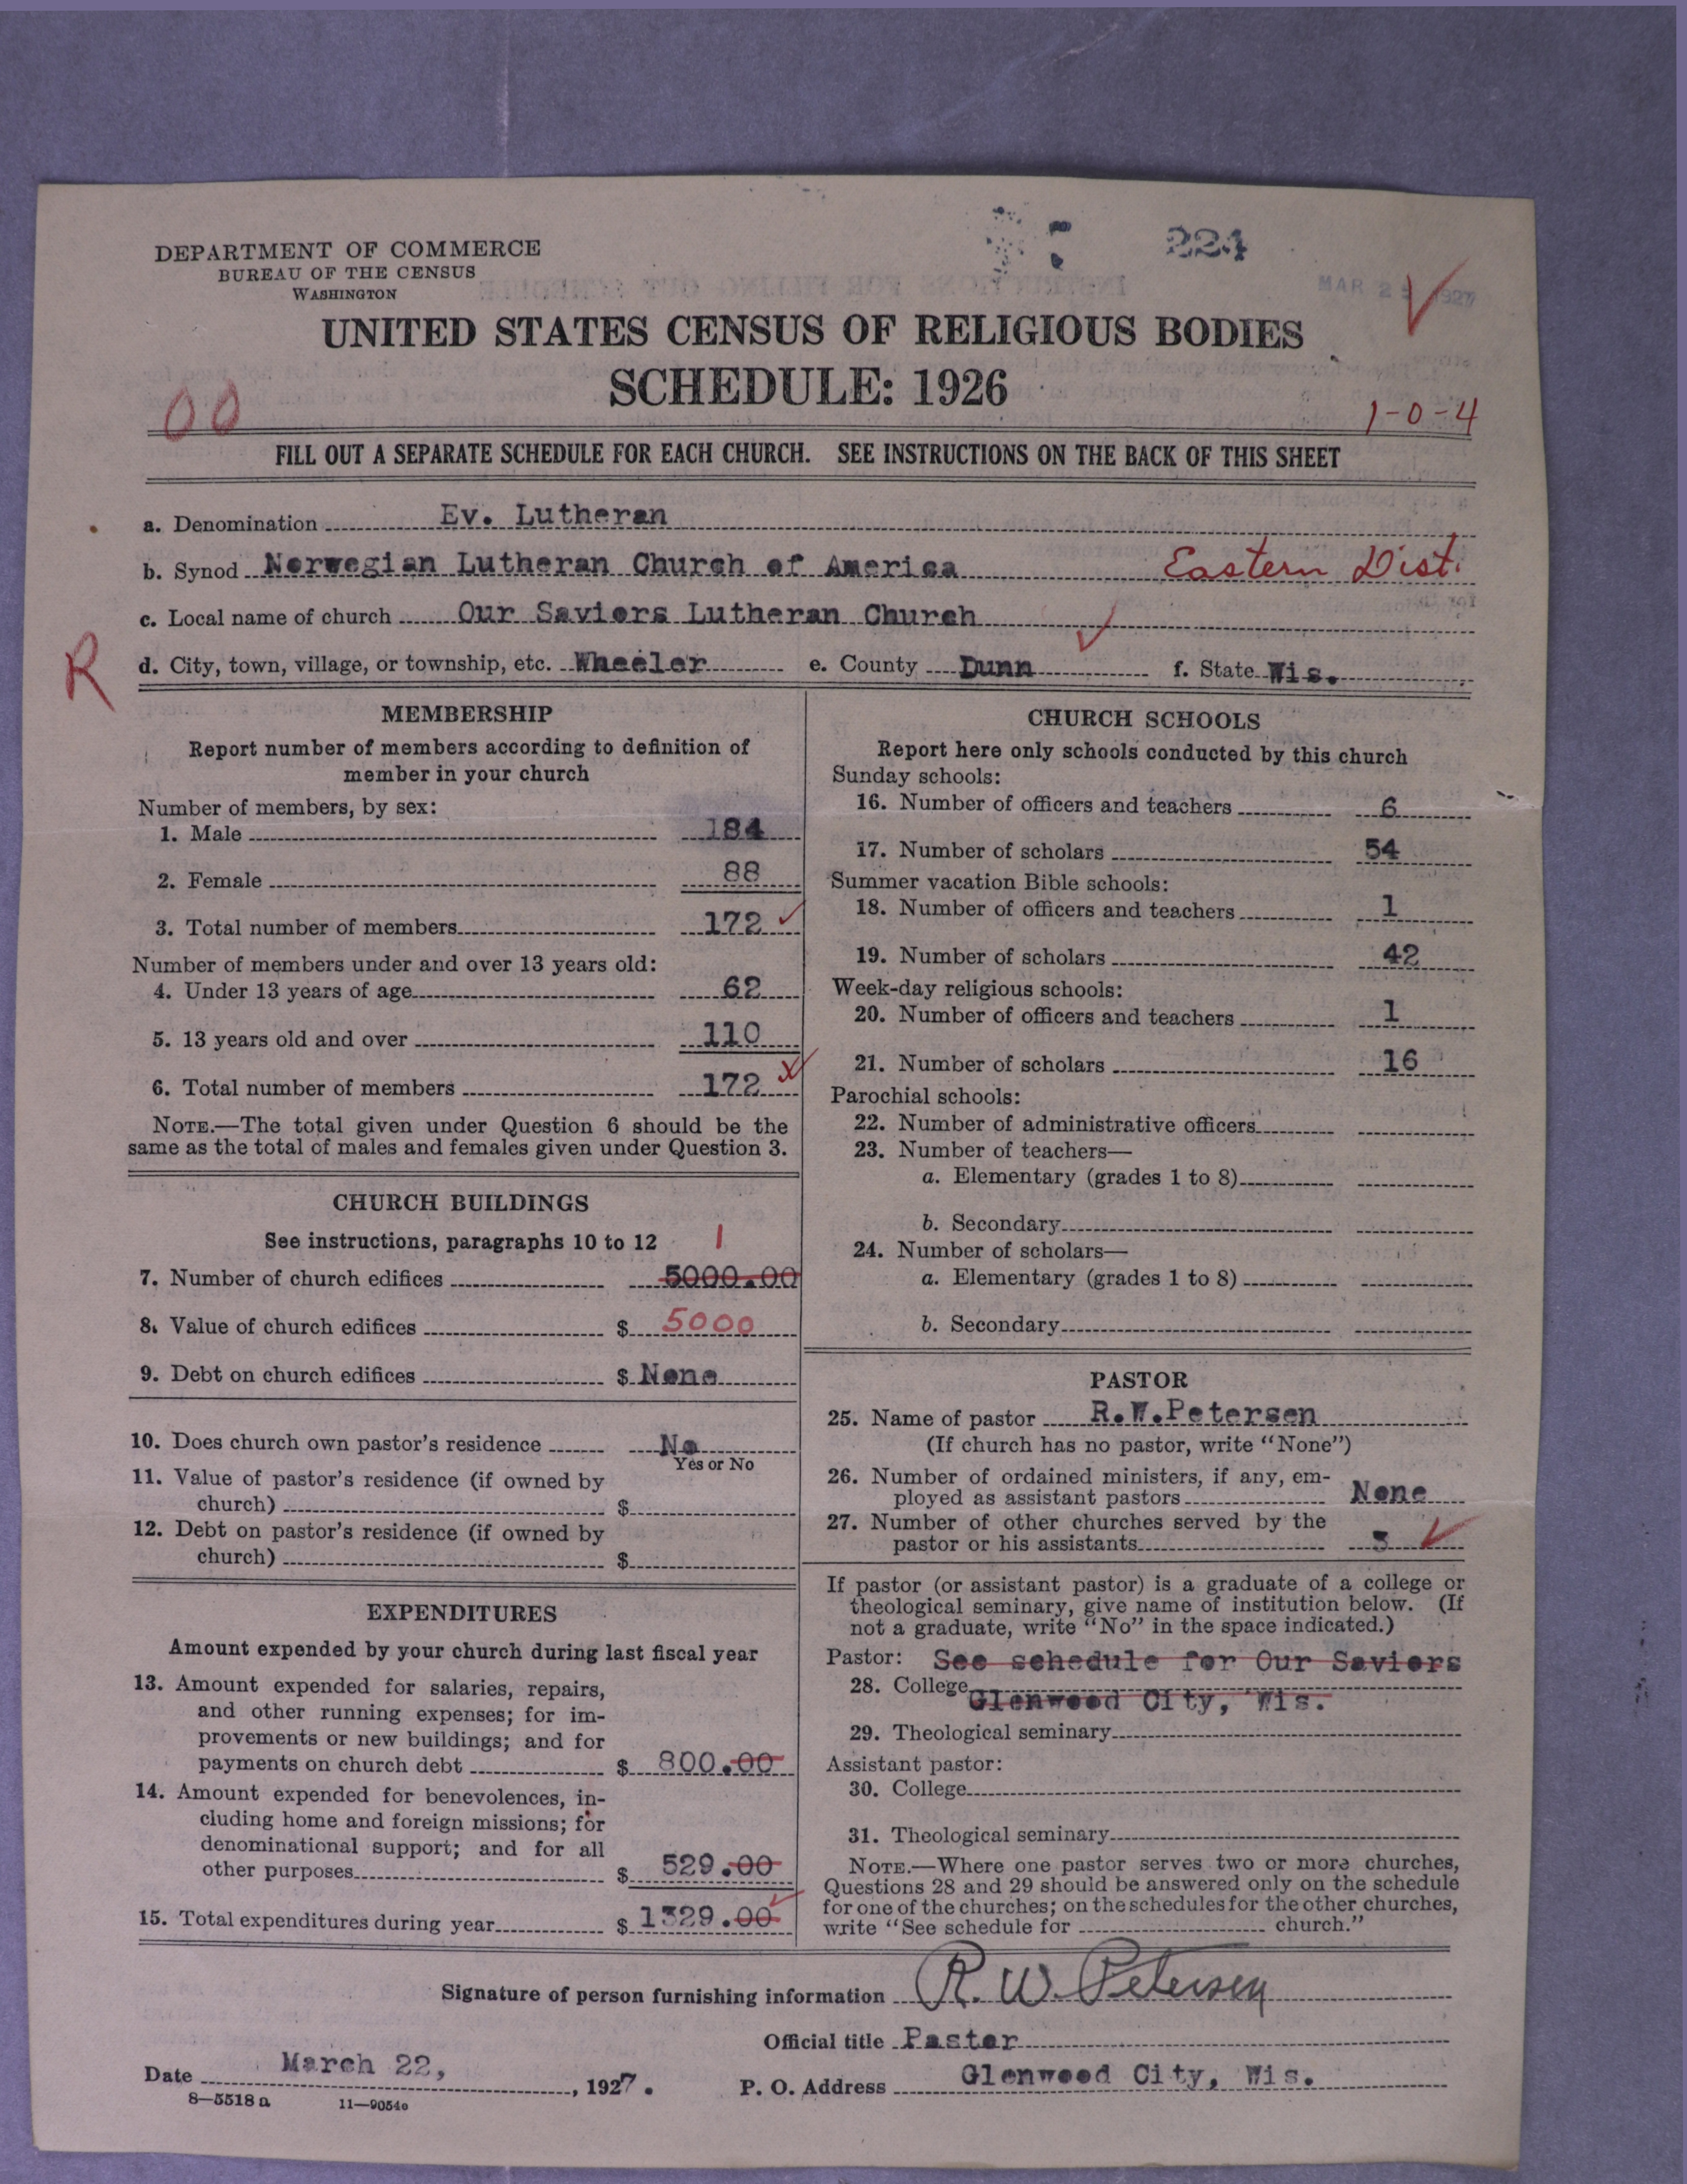 DEPARTMENT OF COMMERCE
BUREAU OF THE CENSUS
WASHINGTON
224
MAR 25 1927
UNITED STATES CENSUS OF RELIGIOUS BODIES
SCHEDULE: 1926
00
1-0-4
FILL OUT A SEPARATE SCHEDULE FOR EACH CHURCH. SEE INSTRUCTIONS ON THE BACK OF THIS SHEET
a. Denomination Ev. Lutheran
b. Synod Norwegian Lutheran Church of America Eastern Dist.
c. Local name of church Our Saviors Lutheran Church
R
d. City, town, village, or township, etc. Wheeler e. County Dunn f. State Wis.
MEMBERSHIP
Report number of members according to definition of
member in your church
Number of members, by sex:
1. Male 184
2. Female 88
3. Total number of members 172
Number of members under and over 13 years old:
4. Under 13 years of age 62
5. 13 years old and over 110
6. Total number of members 172
NOTE.—The total given under Question 6 should be the
same as the total of males and females given under Question 3.
CHURCH BUILDINGS
See instructions, paragraphs 10 to 12 1
7. Number of church edifices 5000.00
8. Value of church edifices $ 5000
9. Debt on church edifices $ None
10. Does church own pastor's residence No
Yes or No
11. Value of pastor's residence (if owned by
church) $
12. Debt on pastor's residence (if owned by
church) $
EXPENDITURES
Amount expended by your church during last fiscal year
13. Amount expended for salaries, repairs,
and other running expenses; for im-
provements or new buildings; and for
payments on church debt $ 800.00
14. Amount expended for benevolences, in-
cluding home and foreign missions; for
denominational support; and for all
other purposes $ 529.00
15. Total expenditures during year $ 1329.00
CHURCH SCHOOLS
Report here only schools conducted by this church
Sunday schools:
16. Number of officers and teachers 6
17. Number of scholars 54
Summer vacation Bible schools:
18. Number of officers and teachers 1
19. Number of scholars 42
Week-day religious schools:
20. Number of officers and teachers 1
21. Number of scholars 16
Parochial schools:
22. Number of administrative officers
23. Number of teachers—
a. Elementary (grades 1 to 8)
b. Secondary
24. Number of scholars—
a. Elementary (grades 1 to 8)
b. Secondary
PASTOR
25. Name of pastor R.W.Petersen
(If church has no pastor, write "None")
26. Number of ordained ministers, if any, em-
ployed as assistant pastors None
27. Number of other churches served by the
pastor or his assistants 3
If pastor (or assistant pastor) is a graduate of a college or
theological seminary, give name of institution below. (If
not a graduate, write "No" in the space indicated.)
Pastor: See schedule for Our Saviors
28. College Glenwood City, Wis.
29. Theological seminary
Assistant pastor:
30. College
31. Theological seminary
NOTE.—Where one pastor serves two or more churches,
Questions 28 and 29 should be answered only on the schedule
for one of the churches; on the schedules for the other churches,
write "See schedule for church."
Signature of person furnishing information R. W. Petersen
Official title Pastor
Date March 22, , 1927. P. O. Address Glenwood City, Wis.
8—5518 a 11—9054c